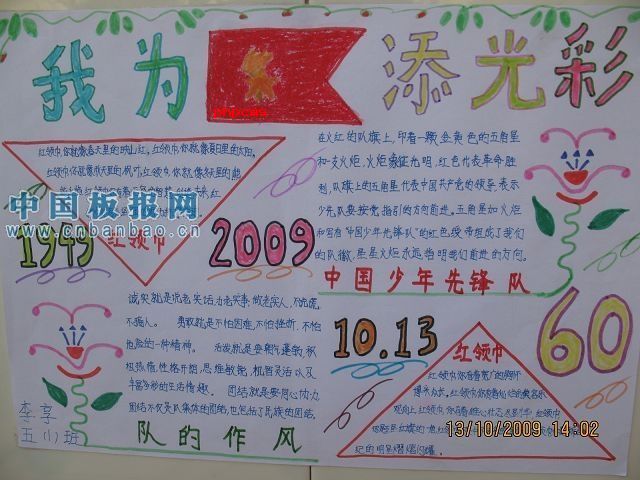 我为
添光彩
红领巾,你就像春天里的映山红,红领巾,你就像夏日里的太阳,
红领巾,你就像秋天里的枫叶,红领巾,你就像
红领巾
1949
2009
在火红的队旗上,印着一颗金黄色的五角星
和一支火炬,火炬象征光明,红色代表革命胜
利,队旗上的五角星代表中国共产党的领导,表示
少先队要按党指引的方向前进。五角星加火炬
和写有"中国少年先锋队"的红色绶带组成了我们
的队徽,星星火炬永远指明我们前进的方向。
中国少年先锋队
中国板报网
www.cnbanbao.cn
诚实就是说老实话,办老实事,做老实人,不说谎,
不骗人。 勇敢就是不怕困难,不怕挫折,不怕
危险的一种精神。 活泼就是要朝气蓬勃,积
极热情,性格开朗,思维敏捷,机智灵活以及
丰富多彩的生活情趣。 团结就是要同心协力
团结不仅是队集体的团结,也包括了民族的团结
队的作风
李享
五(1)班
10.13
60
红领巾
红领巾,你有着宽广的胸怀
13/10/2009 14:02